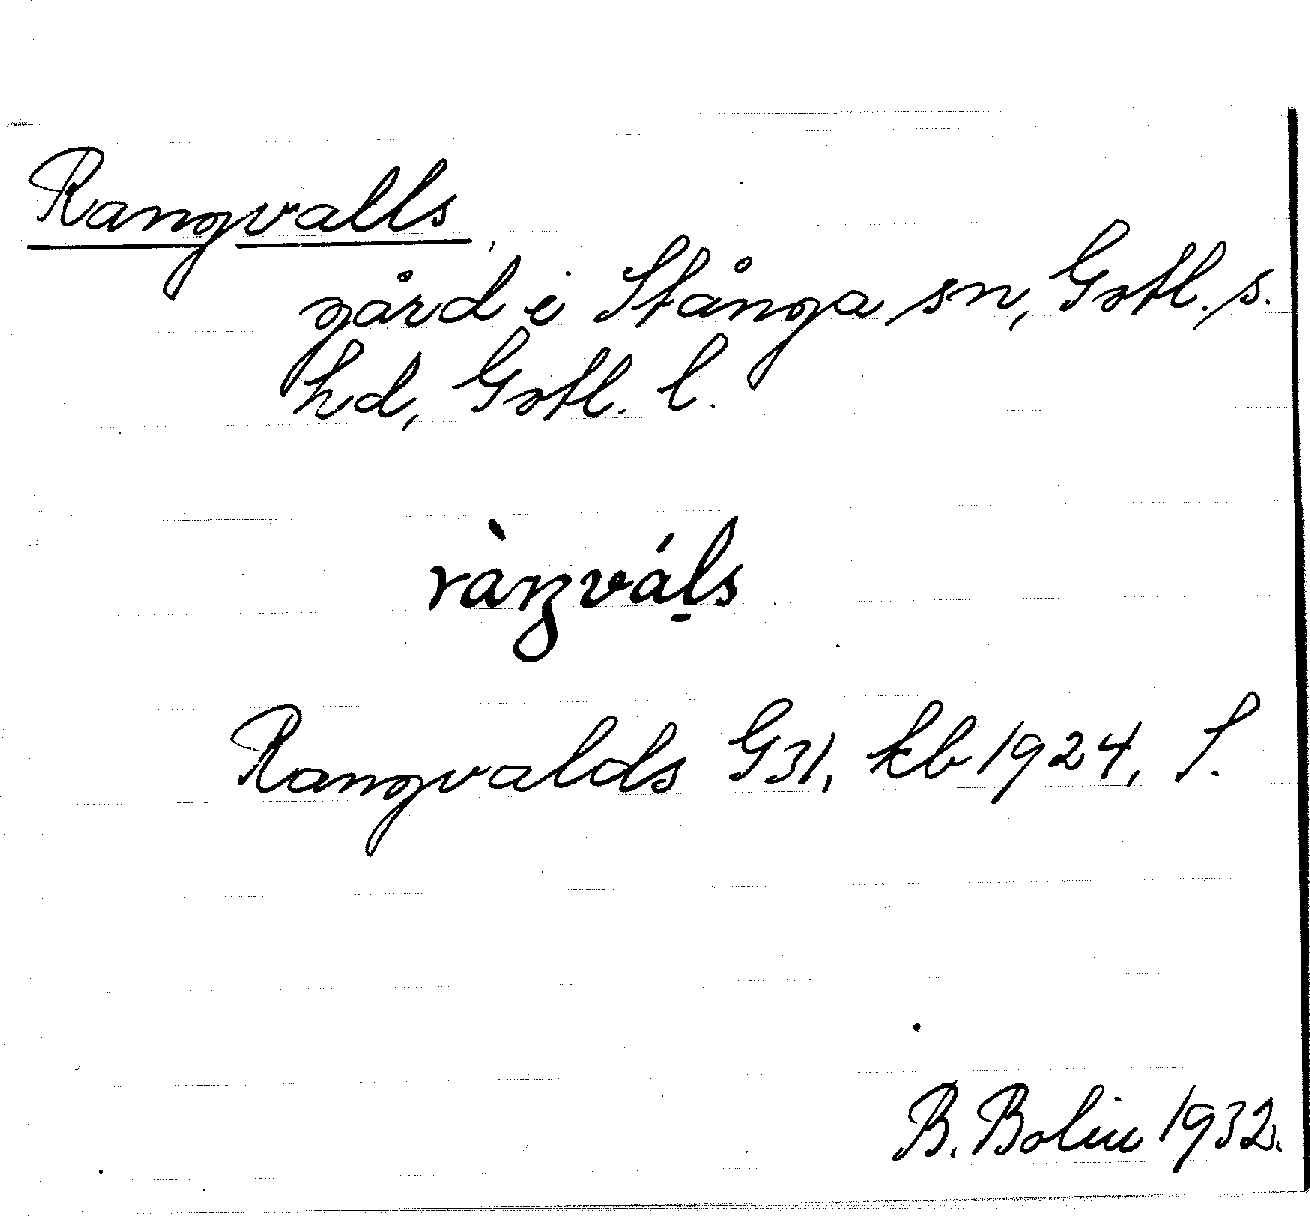 Rangvalls
gård i Stånga sn, Gotl. s.
hd, Gotl. l.
ràŋváḷs
Rangvalds G31, kb 1924, J.
B. Bolin 1932.